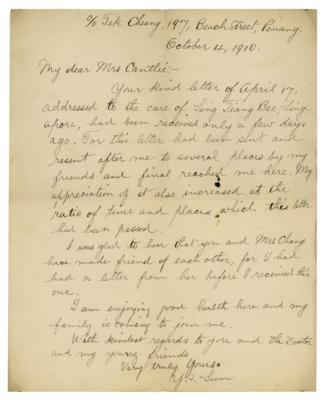 C/o Tek Cheang, 197, Beach Street, Penang.
October 4, 1910.
My dear Mrs Cantlie:-
Your kind letter of April 17,
addressed to the care of Sing Tiang Bee, Sing-
apore, had been received only a few days
ago. For this letter had been sent and
resent after me to several places by my
friends and final reached me here. My
appreciation of it also increased at the
ratio of time and places which this letter
had been passed.
I was glad to hear that you and Mrs Chang
have made friend of each other, for I had
had a letter from her before I received this
one.
I am enjoying good health here and my
family is coming to join me.
With kindest regards to you and the Doctor
and my young friends
Very truly Yours
Y. S. Sun